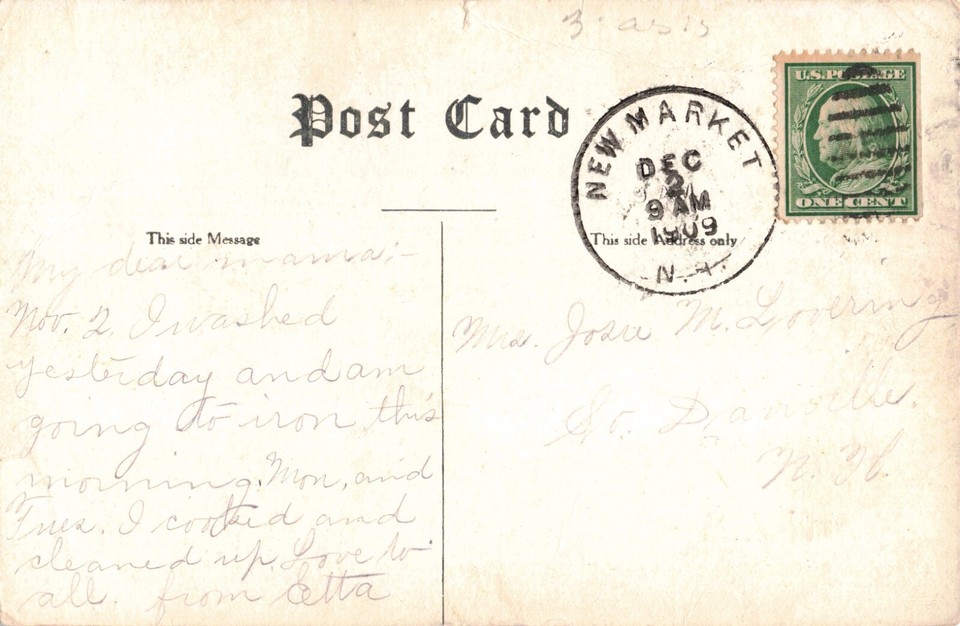 3 as is
Post Card
NEWMARKET
DEC
2
9 AM
1909
N.H.
U.S. POSTAGE
ONE CENT
This side Message
This side Address only
My dear mama;-
Nov. 2. I washed
yesterday and am
going to iron this
morning. Mon. and
Tues. I cooked and
cleaned up. Love to
all. from Etta
Mrs. Josie M. Lovering
So. Danville.
N. H.